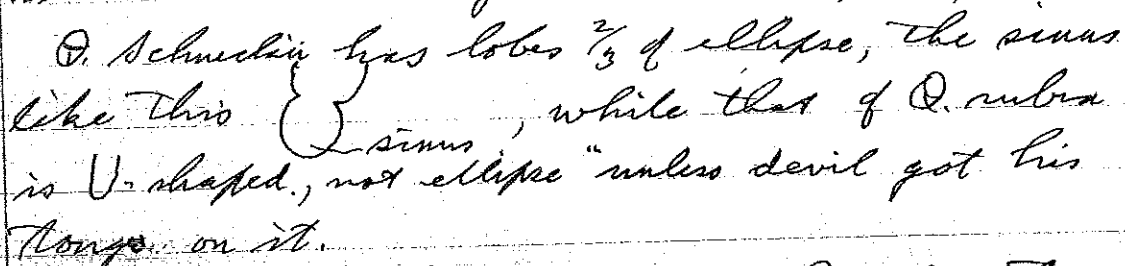 Q. Schneckii has lobes 2/3 of ellipse, the sinus
like this sinus, while that of Q. rubra
is U-shaped., not ellipse "unless devil got his
tongs on it.